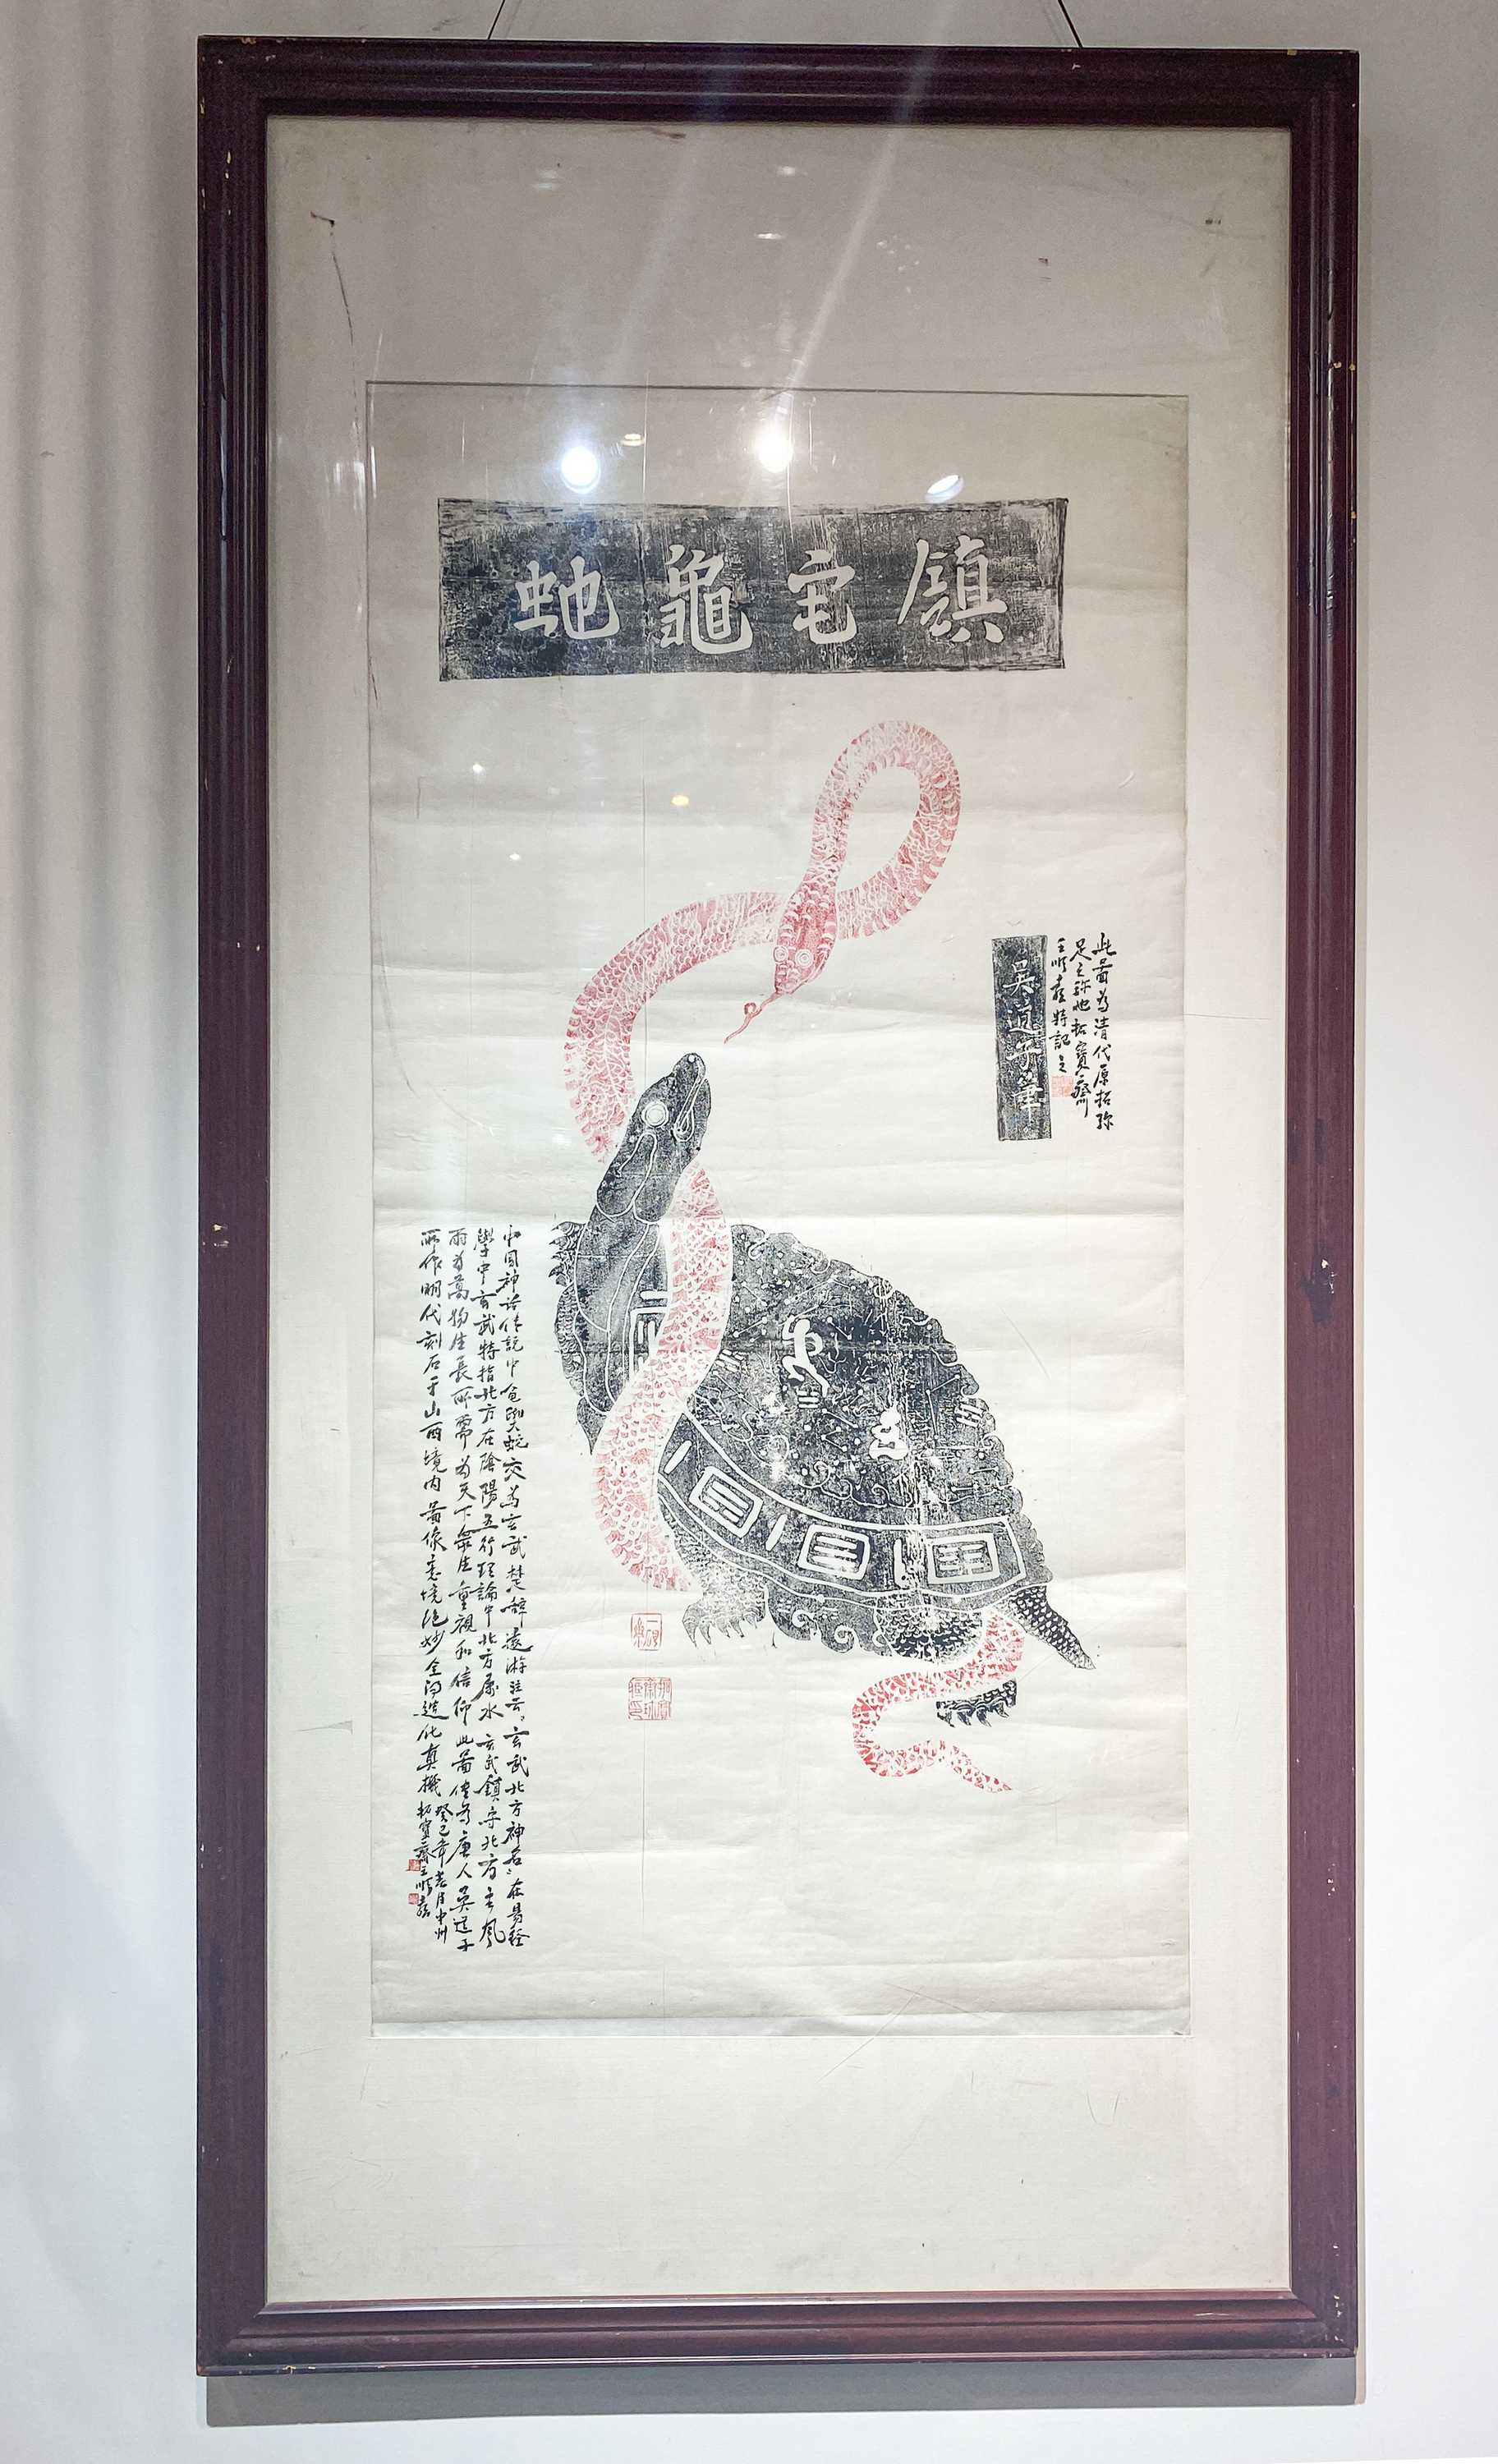 鎮宅龜虵
此圖為清代原拓珎
足之珎也拓寶齋
王順喜特記之
吳道子筆
中國神話傳說中龜與蛇交為玄武楚辭遠游註云玄武北方神名在易經
學中玄武特指北方在陰陽五行理論中北方屬水玄武鎮守北方主風
雨為萬物生長所需為天下眾生重視和信仰此圖傳為唐人吳道子
所作明代刻石于山西境內圖像意境絕妙全得造化真機
癸巳年老月中州
拓寶齋王順喜